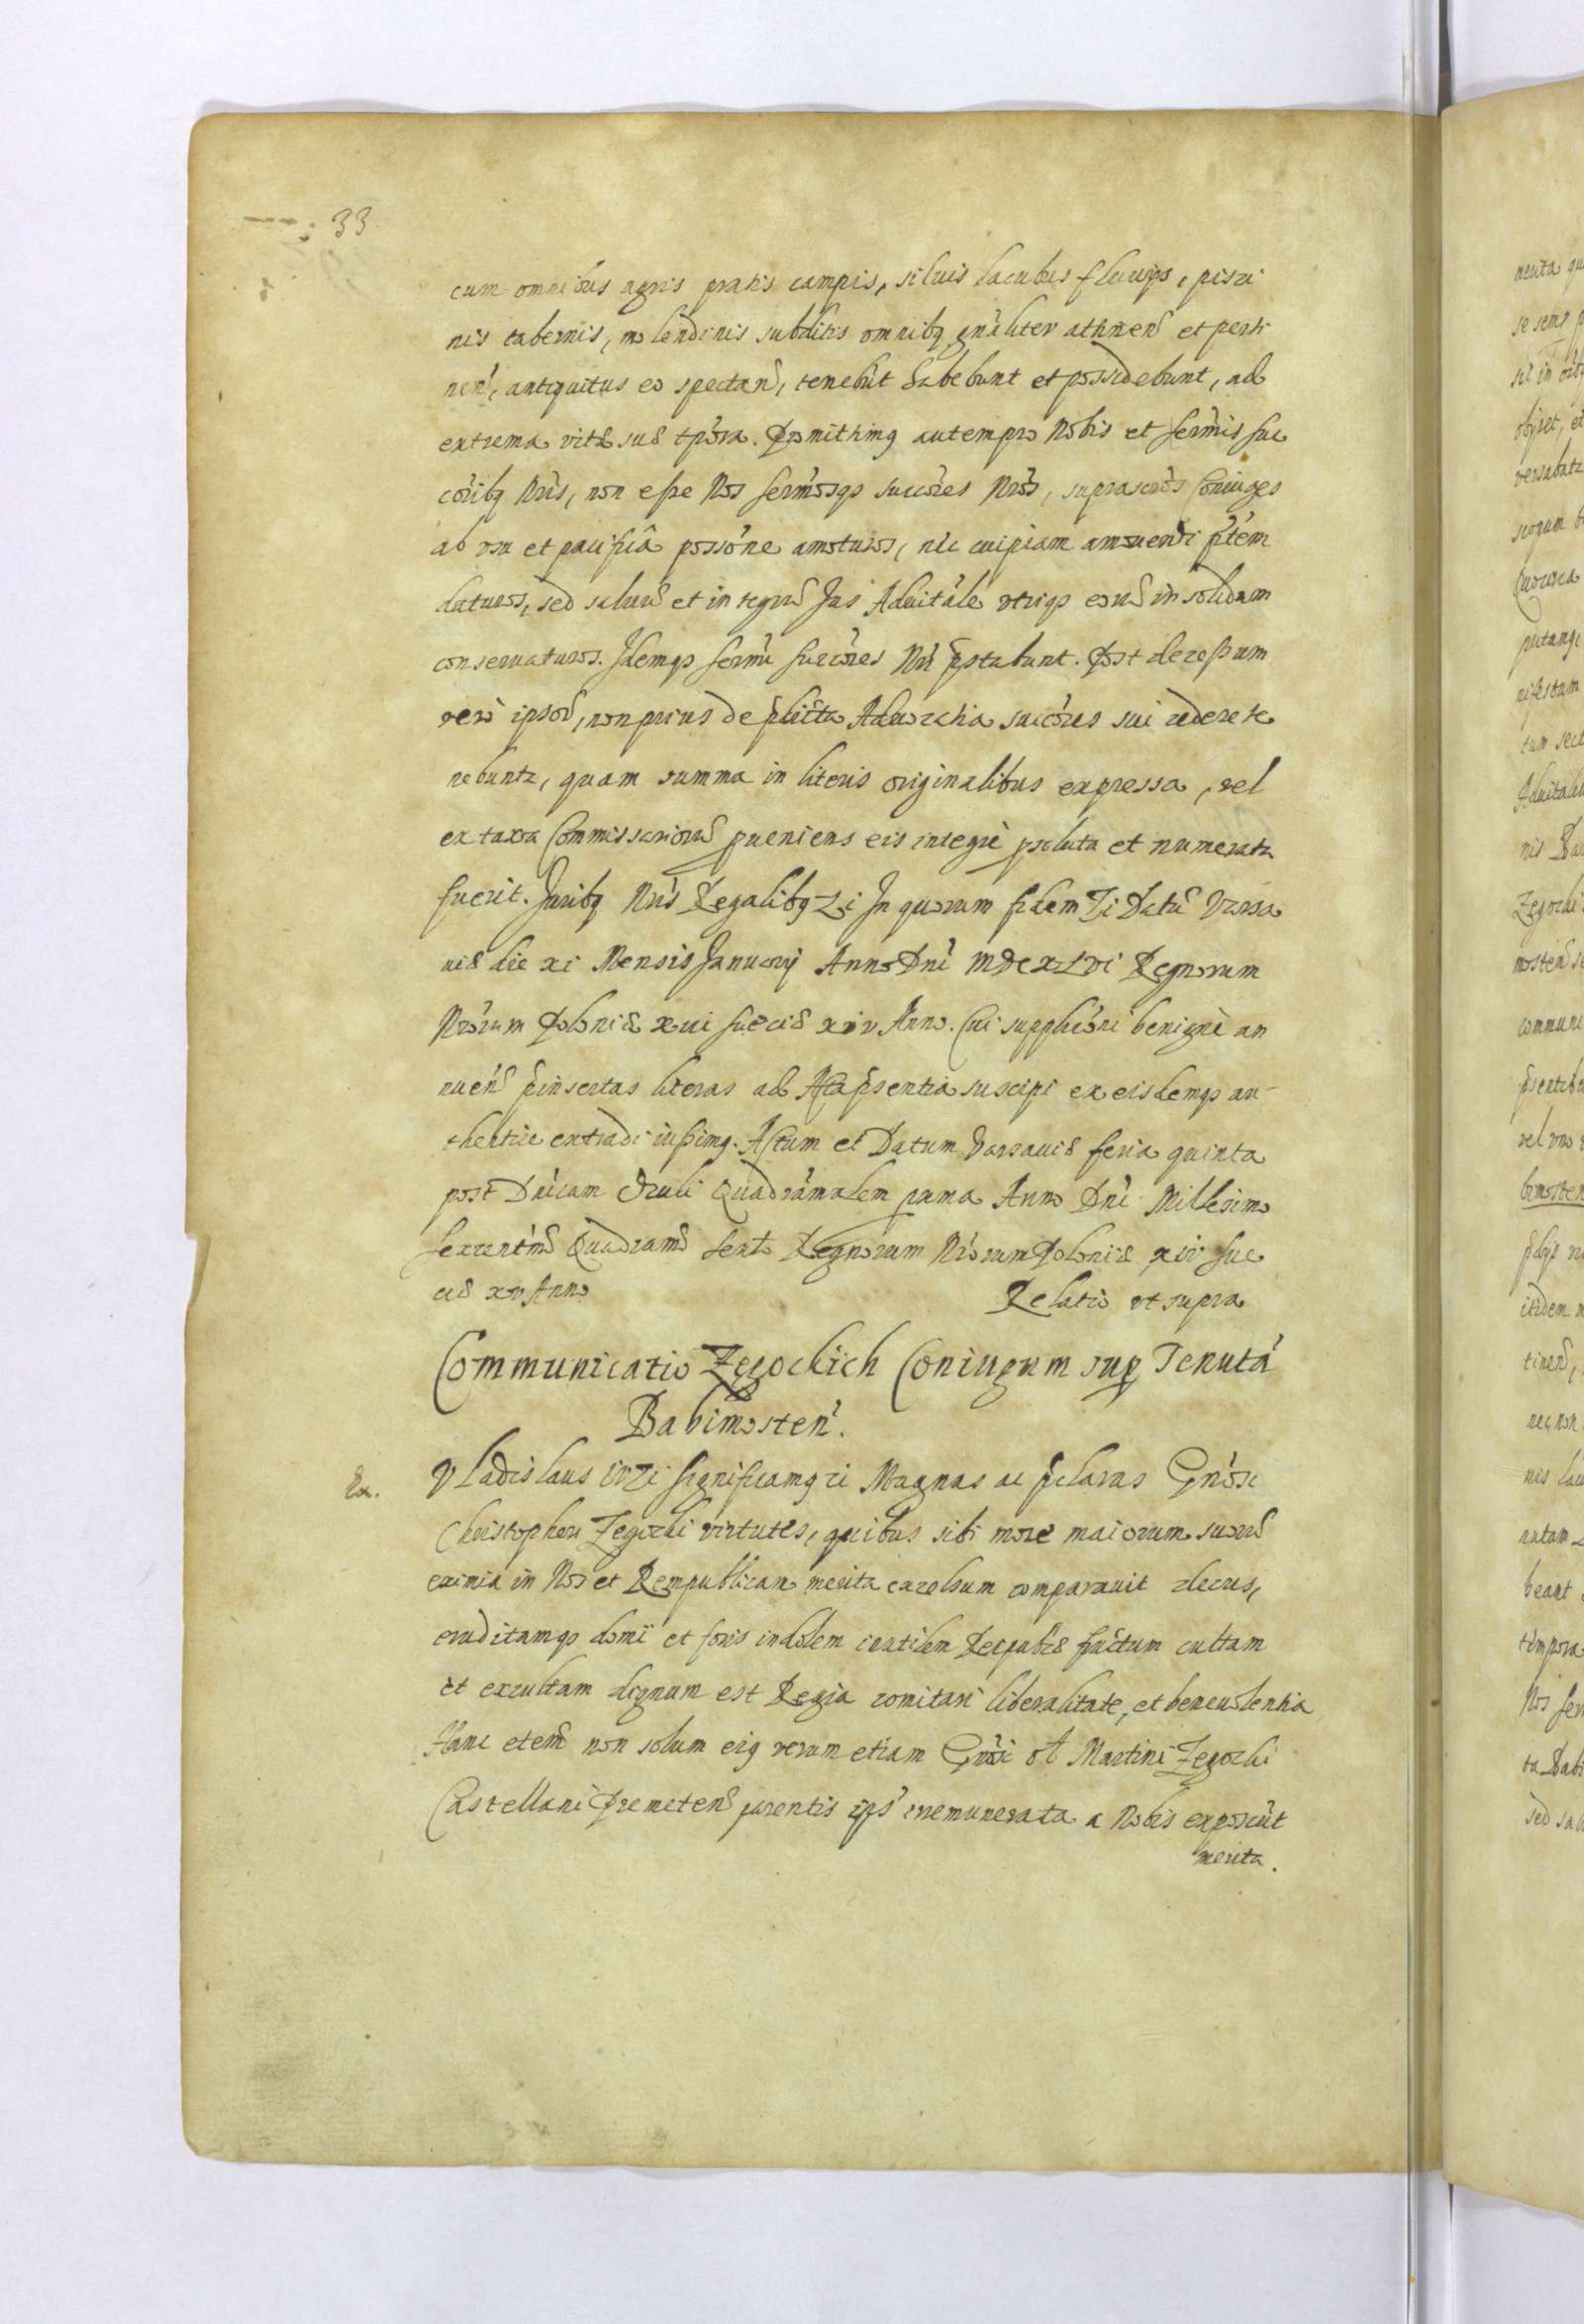 33
cum omnibus agris pratis campis, siluis lacubus fluuijs, pisci
nis tabernis, molendinis subditis omnibq gnãliter attinen̄ et perti
nen̄, antiquitus eo spectan̄, tenebūt habebunt et possidebunt, ad
extrema vitæ suæ tpõra. Promittimq autem pro Nobis et sermis suc
cõribq Nrĩs, non esse Nos sermosqs succõres Nrõs, suprascrõs Coniuges
ab vsu et pacifica possõne amoturos, nec cuipiam amouendi ptẽm
daturos, sed saluũ et integrũ Jus Aduitale vtriqs eorũ in solidum
conseruaturos. Idemqs sermi succõres Nrĩ pstabunt. Post decessum
verò ipsorũ, non prius de pdicta Aduocatia succõres sui cedere te
nebuntr, quam summa in literis originalibus expressa, vel
ex taxa Commissariorũ pueniens eis integrè psoluta et numerata
fuerit. Juribq Nrĩs Regalibq Zi In quorum fidem Zi Datũ Varsa
uiæ die xi Mensis Januarij Anno Dnĩ MDCXLVI Regnorum
Nrõrum Poloniæ xiii Sueciæ xiv Anno. Cui supplicõni benignè an
nuen̄ pinsertas literas ad Acta psentia suscipi ex eisdemqs au-
thenticè extradi iussimq. Actum et Datum Varsauiæ feria quinta
post Dnĩcam Oculi Quadrãmalem pxma Anno Dnĩ Millesimo
sexcentmõ Quadramõ sexto Regnorum Nrõrum Poloniæ xiv Sue
ciæ xv Anno
Relatio vt supra
Communicatio Zegockich Coniugum sup Tenutã
Babimosten̄.
Ex.
Vladislaus IV Zi Significamq zi Magnas ac pclaras Gnõsi
Christophori Zegocki virtutes, quibus sibi more maiorum suorũ
eximia in Nos et Rempublicam merita excelsum comparauit decus,
eruditamqs domi et foris indolem Reipubcæ cultam
et excultam dignum est Regia comitari liberalitate, et beneuolentia
Hanc etenĩ non solum eiq verum etiam Gnõsi ol Martini Zegocki
Castellani Premeten̄ parentis ips̃ irremunerata a Nobis exposcũt
merita.